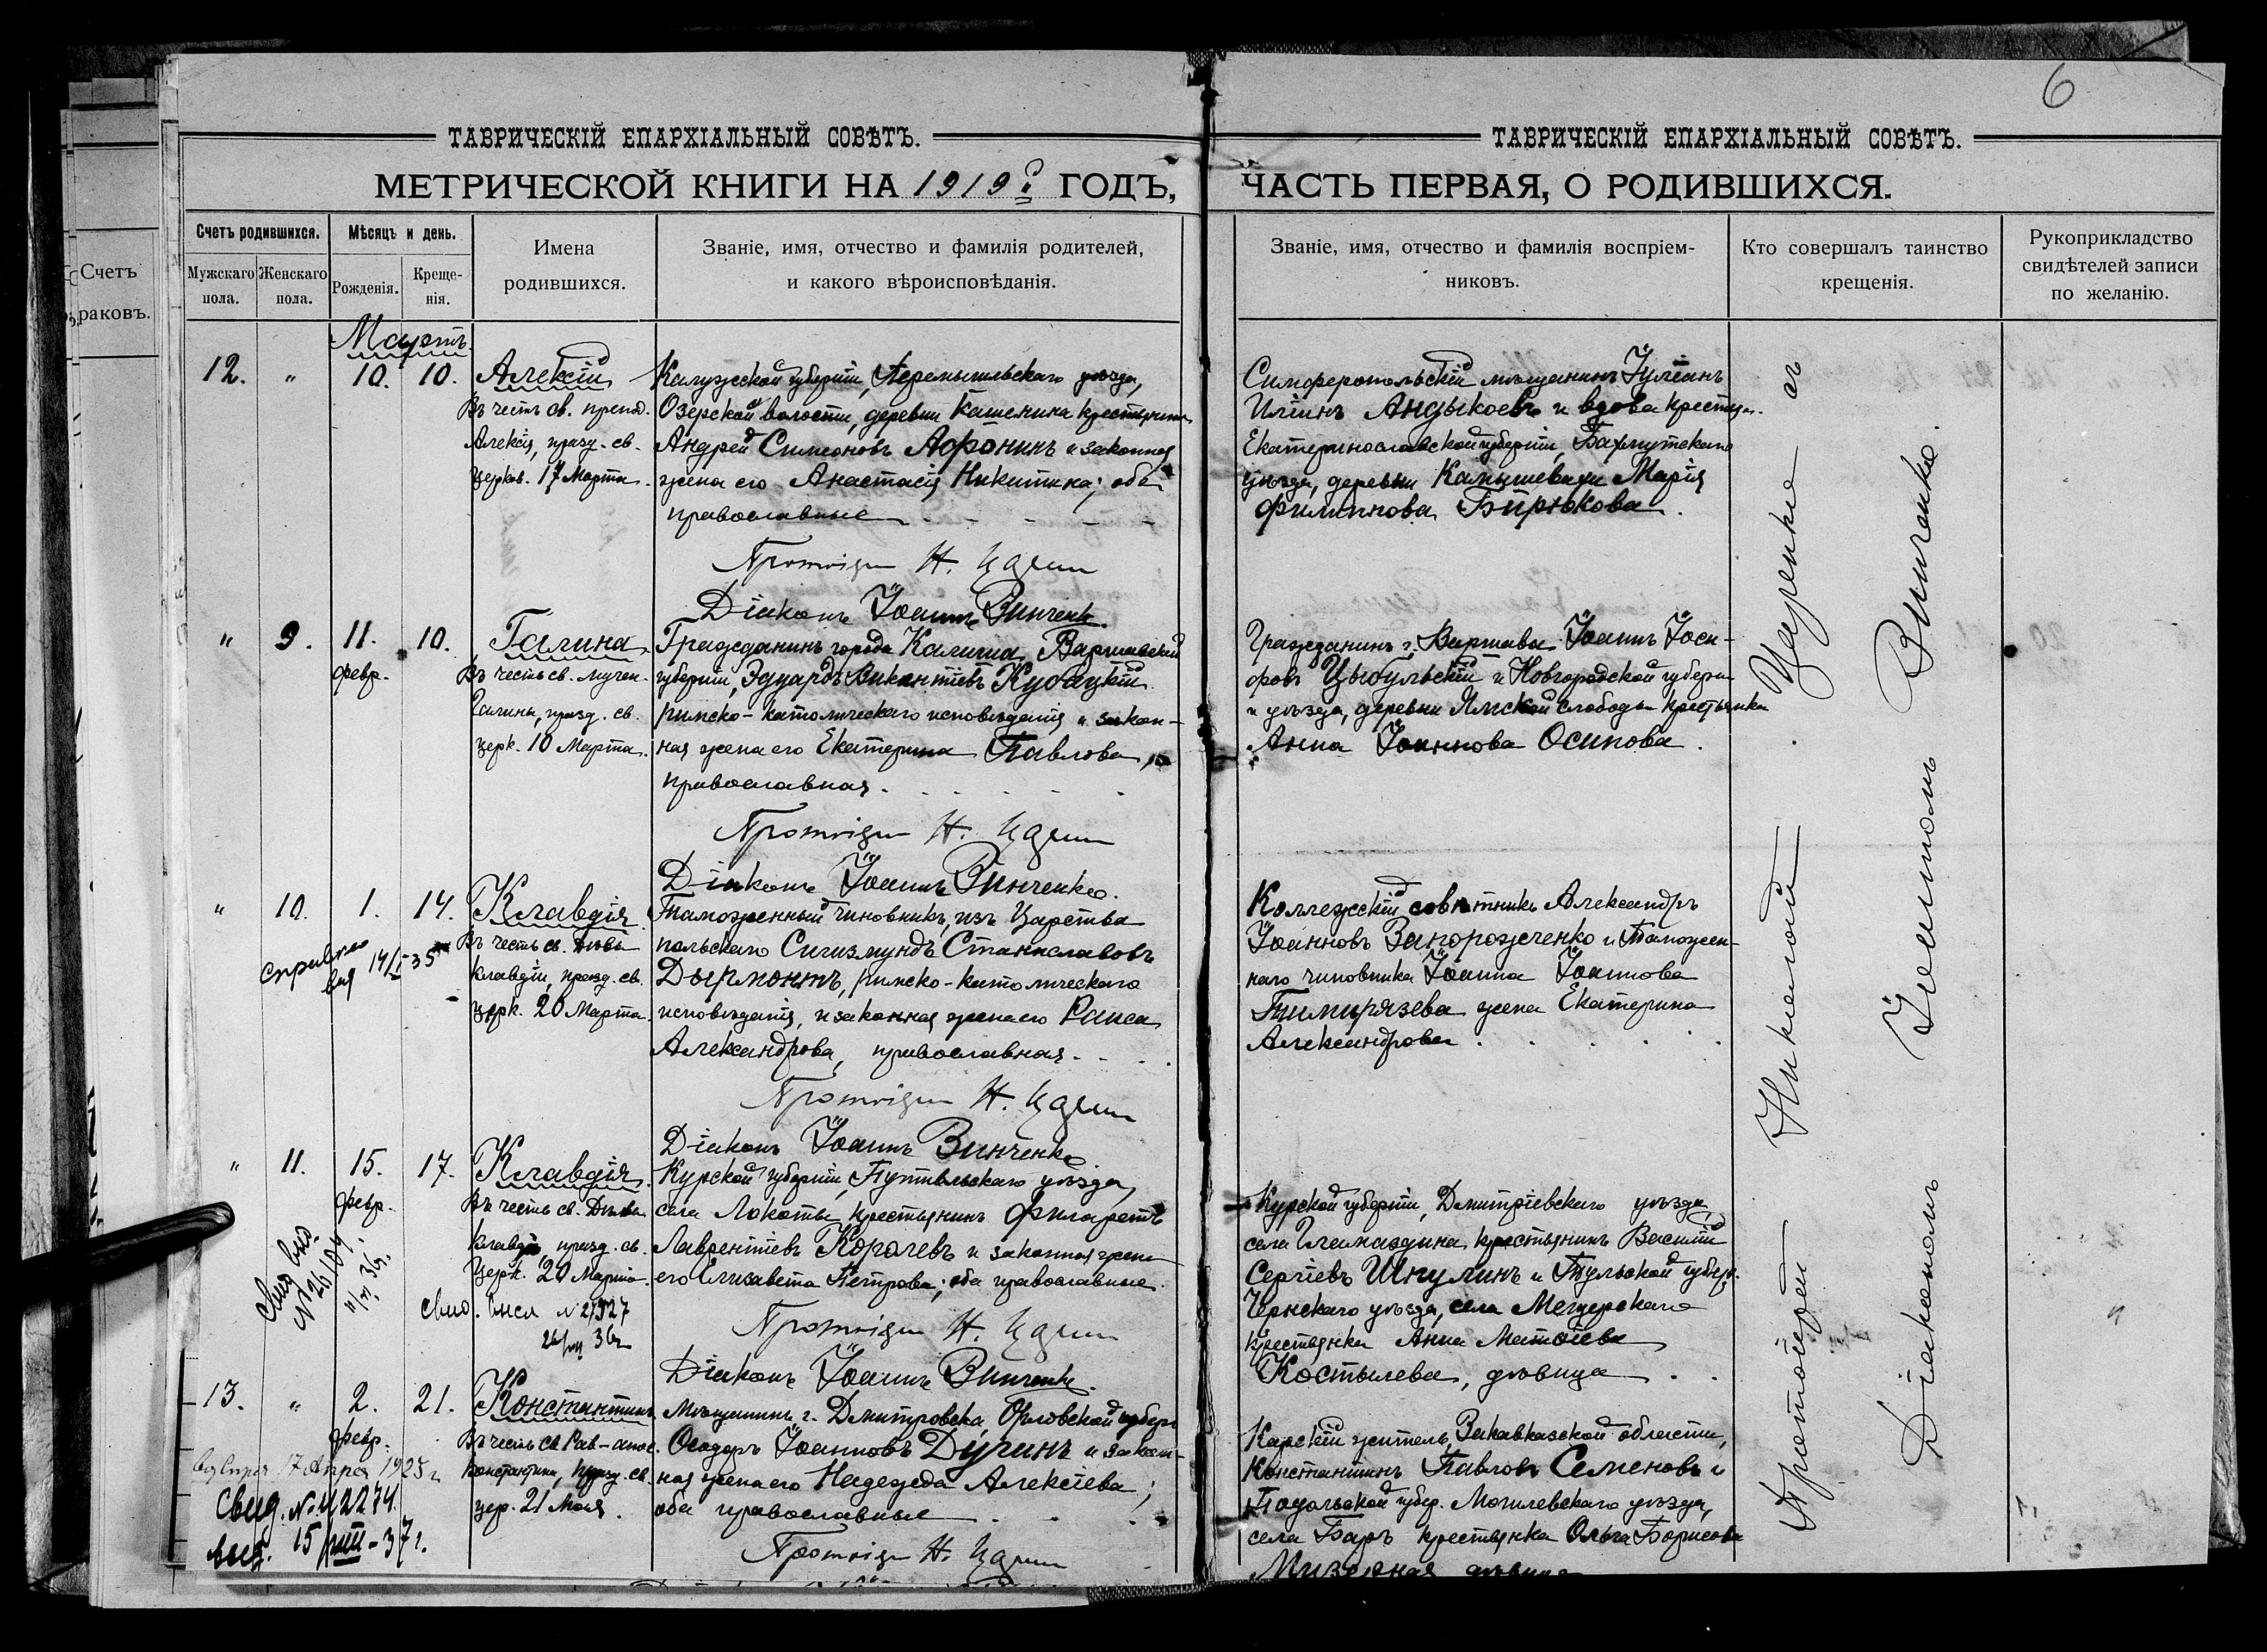 6
ТАВРИЧЕСКІЙ ЕПАРХІАЛЬНЫЙ СОВѢТЪ.
МЕТРИЧЕСКОЙ КНИГИ НА 1919й ГОДЪ,
Счетъ родившихся.
Мужскаго пола.
Женскаго пола.
Мѣсяцъ и день.
Рожденія.
Креще-
нія.
Имена
родившихся.
Званіе, имя, отчество и фамилія родителей,
и какого вѣроисповѣданія.
ТАВРИЧЕСКІЙ ЕПАРХІАЛЬНЫЙ СОВѢТЪ.
ЧАСТЬ ПЕРВАЯ, О РОДИВШИХСЯ.
Званіе, имя, отчество и фамилія воспріем-
никовъ.
Кто совершалъ таинство
крещенія.
Рукоприкладство
свидѣтелей записи
по желанію.
Счетъ
раковъ.
Мартъ.
12. " 10. 10. Алексій
Въ честь св. препод.
Алексія, празд. св.
церков. 17 Марта.
Калужской губерніи, Перемышльскаго уѣзда,
Озерской волости, деревни Кашенина крестьянинъ
Андрей Симеоновъ Афонинъ и законная
жена его Анастасія Никитина; оба
православные
Протоіерей Н.
Діаконъ Іоаннъ Винченко
Симферопольскій мѣщанинъ Іуліанъ
Иліинъ Андыкоевъ и вдова крестьян.
Екатеринославской губерніи, Бахмутскаго
уѣзда, деревни Камышевахи Марія
Филиппова Бирюкова.
" 9. 11. 10. Галина
февр.
Въ честь св. мучен.
Галины, празд. св.
церк. 10 Марта.
Гражданинъ города Калиша, Варшавской
губерніи, Эдуардъ Викентіевъ Кубацкій
римско-католическаго исповѣданія и закон-
ная жена его Екатерина Павлова,
православная.
Протоіерей Н.
Діаконъ Іоаннъ Винченко.
Гражданинъ г. Варшавы Іоаннъ Іоси-
фовъ Цыбульскій и Новгородской губерніи
и уѣзда, деревни Ямской Слободы крестьянка
Анна Іоаннова Осипова.
" 10. 1. 14. Клавдія
Въ честь св. дѣвы
Клавдіи, празд. св.
церк. 20 Марта.
справка
14/I 35
Таможенный чиновникъ, изъ Царства
польскаго Сигизмундъ Станиславовъ
Дырмонтъ, римско-католическаго
исповѣданія, и законная жена его Раиса
Александрова, православная.
Протоіерей Н.
Діаконъ Іоаннъ Винченко
Коллежскій совѣтникъ Александръ
Іоанновъ Запорожченко и Таможен-
наго чиновника Іоанна Іоаннова
Тимирязева жена Екатерина
Александрова.
" 11. 15. 17. Клавдія
февр.
Въ честь св. Дѣвы
Клавдіи, празд. св.
Церк. 20 Марта.
36 г.
36 г
Курской губерніи, Путивльскаго уѣзда,
села Локотье крестьянинъ Филаретъ
Лаврентіевъ Королевъ и законная жена
его Елизавета Петрова; оба православные.
Протоіерей Н.
Діаконъ Іоаннъ Винченко.
Курской губерніи, Дмитріевскаго уѣзда,
крестьянинъ Василій
Сергіевъ Шкулинъ и Тульской губер.
Чернскаго уѣзда, села Мещерскаго
крестьянка Анна Матѳіева
Костылева, дѣвица
13. " 2. 21. Константинъ
февр.
Въ честь св Рав-апос.
Константина, празд. св.
цер. 21 Мая.
17 апр 1925 г
Свид.
выд. 15/VIII-37 г.
Мѣщанинъ г. Дмитровска, Орловской губерн
Ѳеодоръ Іоанновъ Дугинъ и закон-
ная жена его Надежда Алексіева;
оба православные
Протоіерей Н.
Карскій житель, Закавказской области,
Константинъ Павловъ Семеновъ и
Подольской губер. Могилевскаго уѣзда,
села Баръ крестьянка Ольга Борисова
дѣвица
Протоіерей Николай Царенко съ
Діакономъ Іоанномъ Винченко.